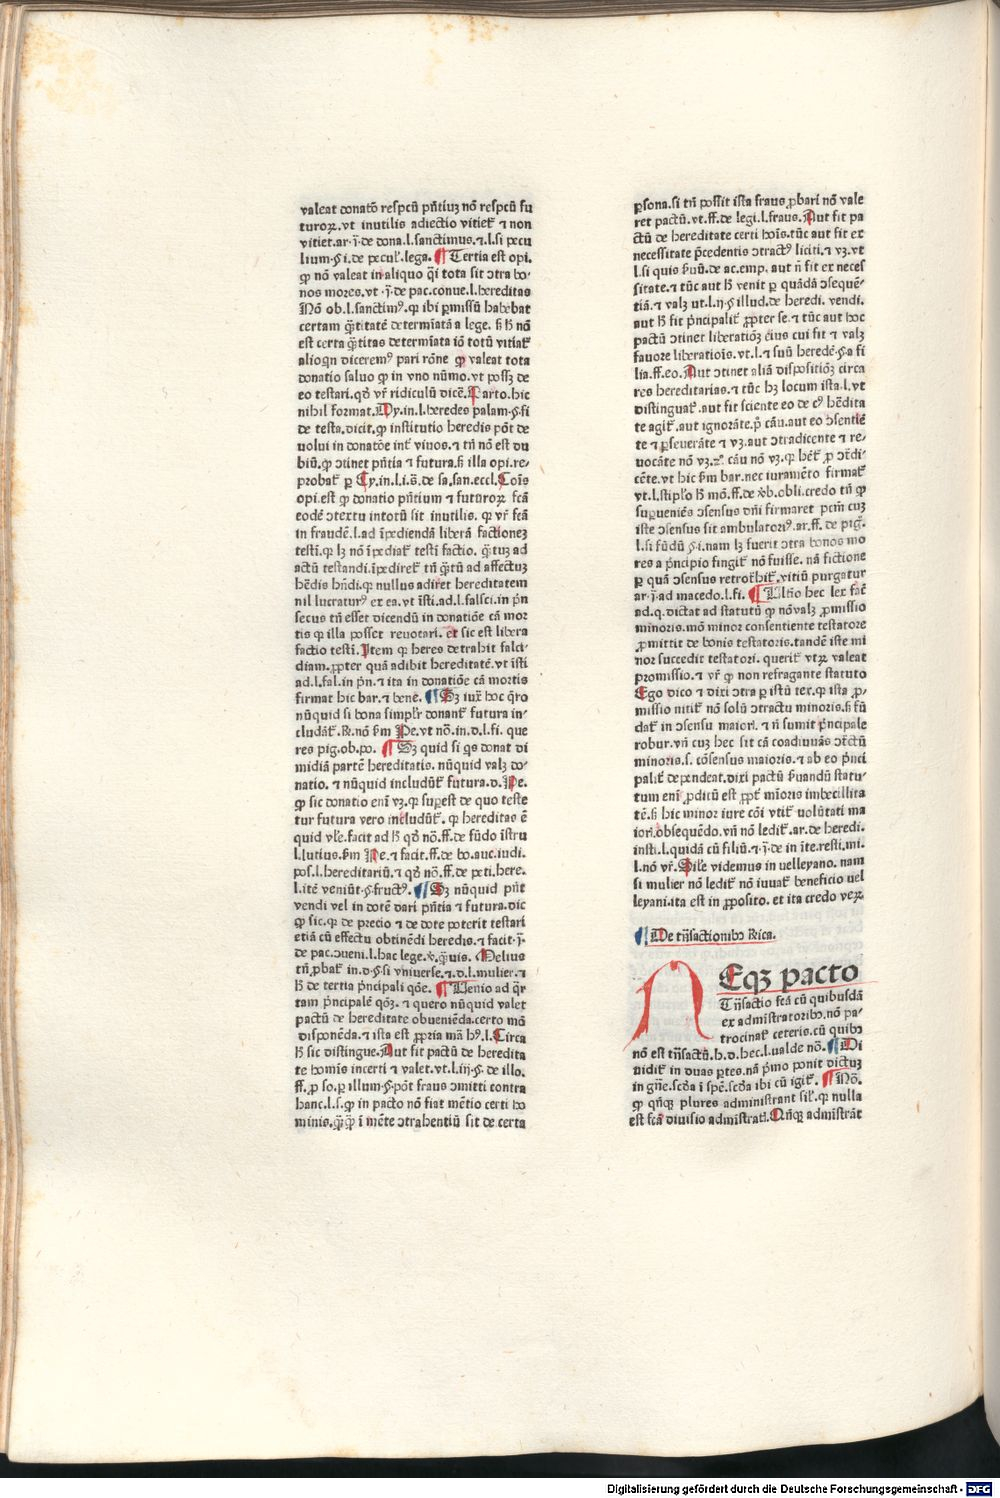 valeat donatō respcū pn̄tiuꝫ nō respcū fu
turoꝝ.vt inutilis adiectio vitiet̄ ⁊ non
vitiet.ar.ī.de dona.l.sanctimus.⁊.l.si pecu
lium.§i.de pecul̄.lega. ¶ Tertia est opi.
ꝙ nō valeat in aliquo q̄i tota sit ↄtra bo-
nos mores.vt .ī.de pac.conue.l.hereditas
Nō ob.l.sanctimꝰ.ꝙ ibi ꝑmissū habebat
certam q̄titatē determīatā a lege. s̄ h̄ nō
est certa q̄titas determīata iō totū vitiat̄
alioqn dicеremꝰ pari rōne ꝙ valeat tota
donatio saluo ꝙ in vno nūmo.vt possꝫ de
eo testari.qđ vr̄ ridiculū dicē. Parto.hic
nihil format.Dy.in.l.heredes palam.§.si
de testa.dicit.ꝙ institutio heredis pōt de
uolui in donatōe int̄ viuos.⁊ tn̄ nō est du
biū.ꝙ ↄtinet pn̄tia ⁊ futura.s̄ illa opi.re-
probat̄ ꝑ Cy.in.l.i.ō.de sa.san.eccl.Cōis
opi.est ꝙ donatio pn̄tium ⁊ futuroꝝ fcā
eodē ↄtextu intotū sit inutilis. ꝙ vr̄ fcā
in fraudē.l.ad īpediendā liberā factioneꝫ
testi.ꝙ lꝫ nō īpediat̄ testi factio. q̄tuꝫ ad
actū testandi.īpediret̄ tn̄ q̄tū ad affectuꝫ
hēdis hn̄di.ꝙ nullus adiret hereditatem
nil lucraturꝰ ex ea.vt īsti.ad.l.falsci.in pn̄
secus tn̄ esset dicendū in donatiōe cā mor
tis ꝙ illa posset reuotari. et sic est libera
factio testi.Item ꝙ heres detrahit falci-
diam.ꝓpter quā adibit hereditatē.vt īsti
ad.l.fal.in pn̄.⁊ ita in donatiōe cā mortis
firmat hic bar.⁊ bene. ¶ Sꝫ iux̄ hoc q̄ro
nūquid si bona simplr̄ donant̄ futura in-
cludāt̄.℟.nō s̄m Pe.vt nō.in.d.l.fi. que
res pig.ob.po. ¶ Sꝫ quid si qs donat di
midiā partē hereditatis. nūquid valꝫ do-
natio. ⁊ nūquid includūt̄ futura.d. Pe.
ꝙ sic donatio eni vꝫ.ꝙ suꝑest de quo teste
tur futura vero includūt̄. ꝙ hereditas ē
quid vl̄e.facit ad h̄ qđ nō.ff.de fūdo īstru
l.lutius.s̄m Pe.⁊ facit.ff.de bo.auc.iudi.
pos.l.hereditariū.⁊ qđ nō.ff.de peti.here.
l.itē veniūt.§.fructꝰ. ¶ Sꝫ nūquid pn̄t
vendi vel in dotē dari pn̄tia ⁊ futura.dic
ꝙ sic.ꝙ de precio ⁊ de dote poterit testari
etiā cū effectu obtinēdi heredis.⁊ facit.ī.
de pac.ↄueni.l.hac lege.v̄.q̄uis. Melius
tn̄ ꝓbat̄ in.d.§.si vniuerse.⁊.d.l.mulier.⁊
h̄ de tertia pn̄cipali qōe. ¶ Uenio ad q̄r
tam pn̄cipalē qōꝫ. ⁊ quero nūquid valet
pactū de hereditate obueniēda.certo mō
disponēda.⁊ ista est ꝓpria mā hꝰ.l.Circa
h̄ sic distingue.Aut fit pactū de heredita
te homis incerti ⁊ valet.vt.l.iij.§.de illo.
ff.ꝓ so.ꝑ illum.§.pōt fraus ↄmitti contra
hanc.l.s.ꝙ in pacto nō fiat mētio certi ho
minis.q̄ꝙ ī mēte ↄtrahentiū sit de certa
ꝑsona.si tn̄ possit ista fraus ꝓbari nō vale
ret pactū.vt.ff.de legi.l.fraus.Aut fit pa
ctū de hereditate certi hoīs.tūc aut fit ex
necessitate p̄cedentis ↄtractꝰ liciti.⁊ vꝫ.vt
l.si quis ẜuū.de ac.emp. aut n̄ fit ex neces
sitate.⁊ tūc aut h̄ venit ꝑ quādā ↄsequē-
tiā.⁊ valꝫ ut.l.ij.§ illud.de heredi. vendi.
aut h̄ fit p̄ncipalit̄ ꝓpter se.⁊ tūc aut hoc
pactū ↄtinet liberatiōꝫ eius cui fit ⁊ valꝫ
fauore liberatiois.vt.l.⁊ suū heredē.§.a fi
lia.ff.eo. Aut ↄtinet aliā dispositiōꝫ circa
res hereditarias.⁊ tūc hꝫ locum ista.l.vt
distinguat̄.aut fit sciente eo de cꝰ hēdita
te agit̄.aut ignorāte.pꝰ cāu.aut eo ↄsentiē
te ⁊ ꝑseuerāte ⁊ vꝫ.aut ↄtradicente ⁊ re-
uocāte nō vꝫ.2º cāu nō vꝫ.ꝙ hēt̄ ꝓ ↄtrd̄i-
cēte.vt hic s̄m bar.nec iuramēto firmat̄
vt.l.stipl̄o h̄ mō.ff.de v̄b.obli.credo tn̄ ꝙ
suꝑueniēs ↄsensus dn̄i firmaret pcm̄ cuꝫ
iste ↄsensus sit ambulatoriꝰ.ar.ff. de piḡ.
l.si fūdū §.i.nam lꝫ fuerit ↄtra bonos mo
res a p̄ncipio fingit̄ nō fuisse. nā fictione
ꝑ quā ↄsensus retrot̄hit̄.vitiū purgatur
ar.ī.ad macedo.l.fi. ¶ Ultīo hec lex fac̄
ad.q.dictat ad statutū ꝙ nōvalꝫ ꝓmissio
minoris.mō minor consentiente testatore
ꝓmittit de bonis testatoris.tandē iste mi
nor succedit testatori. querit̄ vtꝝ valeat
promissio.⁊ vr̄ ꝙ non refragante statuto
Ego dico ⁊ dixi ↄtra ꝑ istū tex.ꝙ ista ꝓ-
missio nitit̄ nō solū ↄtractu minoris.s̄ fū
dat̄ in ↄsensu maiori. ⁊ n̄ sumit p̄ncipale
robur.vn̄ cuꝫ hec sit cā coadiuuās ↄtr̄ctū
minoris.s. cōsensus maioris.⁊ ab eo p̄nci
palit̄ deꝑndeat.dixi pactū ẜuandū statu-
tum eni ꝓdicū est ꝓpt̄ mīoris imbecillita
tē.s̄ hic minor iure cōi vtit̄ volūtati ma
iori.obsequēdo.vn̄ nō ledit̄.ar.de heredi.
insti.l.quidā cū filiū.⁊.ī.de in īte.resti.mi.
l.nō vr̄. Sil̄e videmus in uelleyano. nam
si mulier nō ledit̄ nō iuuat̄ beneficio uel
leyani.ita est in ꝓposito. et ita credo veꝝ.
¶ De trn̄sactionibꝰ Rica.
NEqꝫ pacto
Trn̄sactio fcā cū quibusdā
ex admistratoribꝰ.nō pa-
trocinat̄ ceteris.cū quibꝰ
nō est trn̄sactū.h.d.hec.l.ualde nō. ¶ Di
uidit̄ in duas ꝑtes.nā p̄mo ponit dictuꝫ
in gn̄e.scd̄a ī spē.scd̄a ibi cū igit̄. ¶ Nō.
ꝙ qn̄qꝫ plures administrant sil̄.ꝙ nulla
est fcā diuisio admistrati. Qn̄qꝫ admistrāt
Digitalisierung gefördert durch die Deutsche Forschungsgemeinschaft - DFG